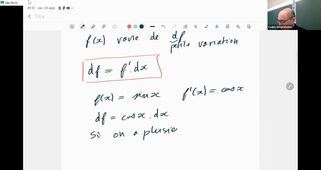 f(x) varie de df
petite variation
df = f'.dx
f(x) = sin x f'(x) = cos x
df = cos x . dx
so on a plusie